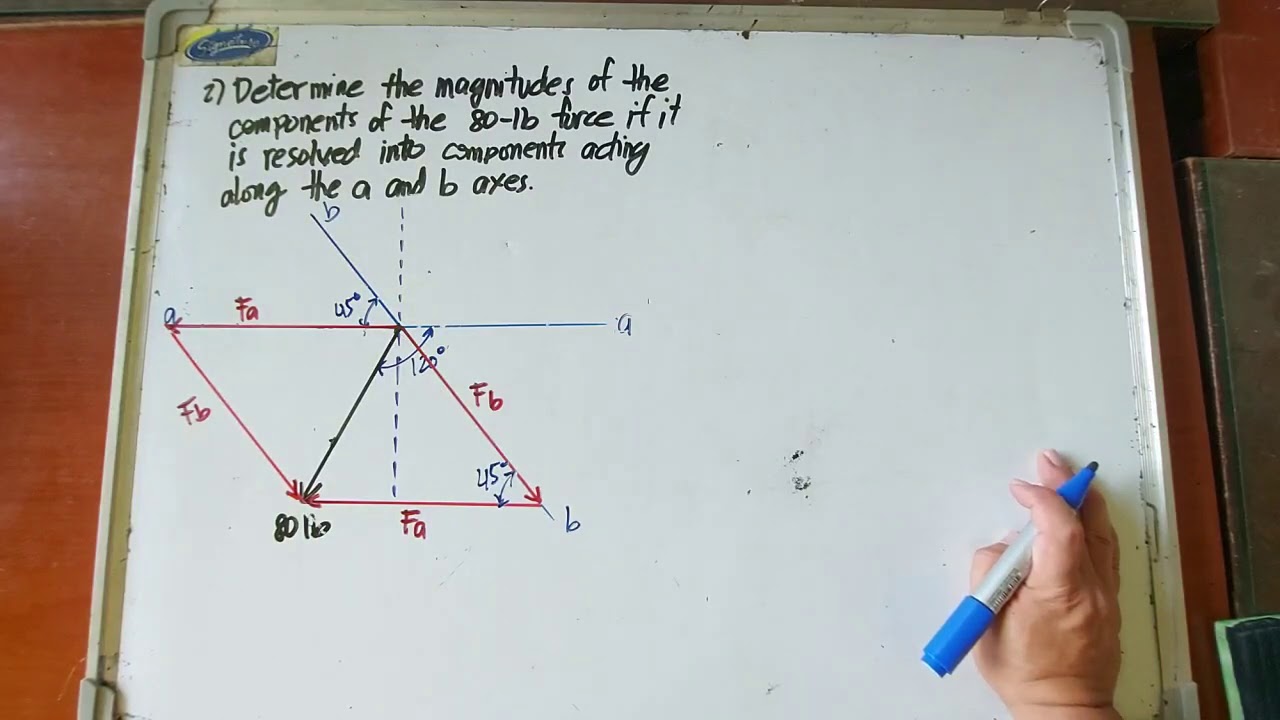 Signature
2) Determine the magnitudes of the
components of the 80-lb force if it
is resolved into components acting
along the a and b axes.
b
45°
a
Fa
a
120°
Fb
Fb
45°
80 lb
Fa
b